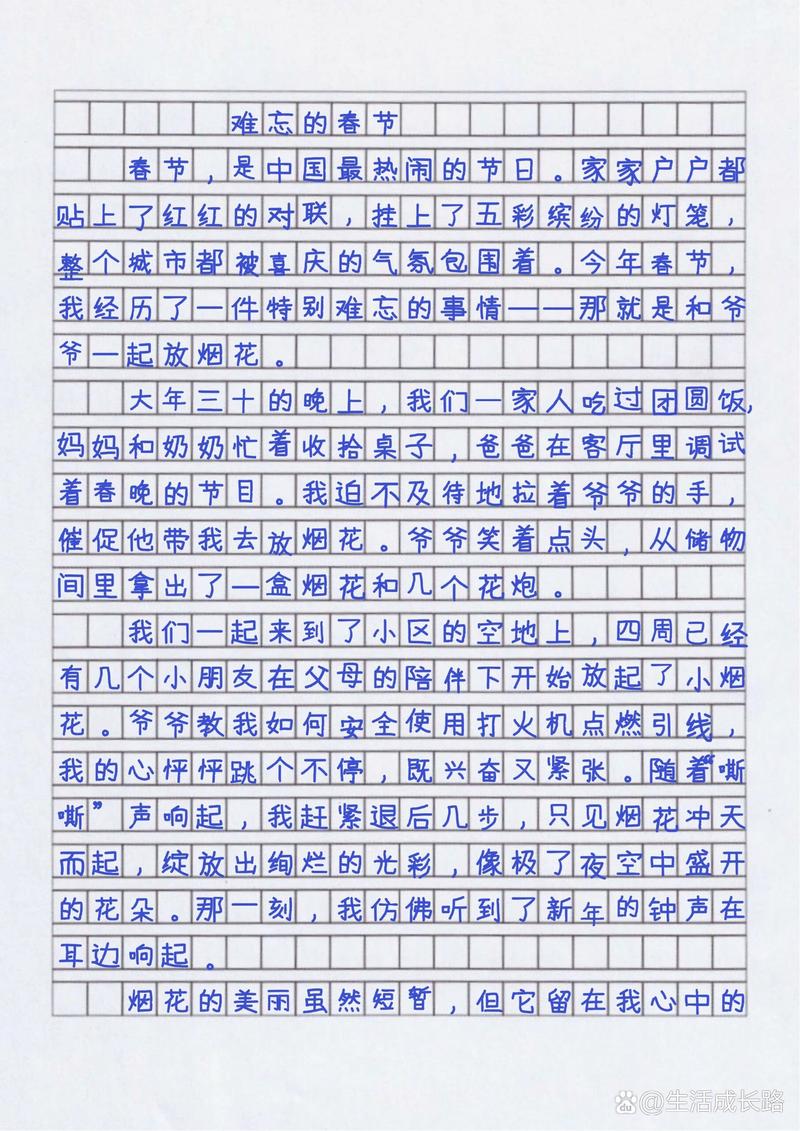 难忘的春节
春节，是中国最热闹的节日。家家户户都
贴上了红红的对联，挂上了五彩缤纷的灯笼，
整个城市都被喜庆的气氛包围着。今年春节，
我经历了一件特别难忘的事情——那就是和爷
爷一起放烟花。
大年三十的晚上，我们一家人吃过团圆饭，
妈妈和奶奶忙着收拾桌子，爸爸在客厅里调试
着春晚的节目。我迫不及待地拉着爷爷的手，
催促他带我去放烟花。爷爷笑着点头，从储物
间里拿出了一盒烟花和几个花炮。
我们一起来到了小区的空地上，四周已经
有几个小朋友在父母的陪伴下开始放起了小烟
花。爷爷教我如何安全使用打火机点燃引线，
我的心怦怦跳个不停，既兴奋又紧张。随着“嘶
嘶”声响起，我赶紧退后几步，只见烟花冲天
而起，绽放出绚烂的光彩，像极了夜空中盛开
的花朵。那一刻，我仿佛听到了新年的钟声在
耳边响起。
烟花的美丽虽然短暂，但它留在我心中的
du@生活成长路